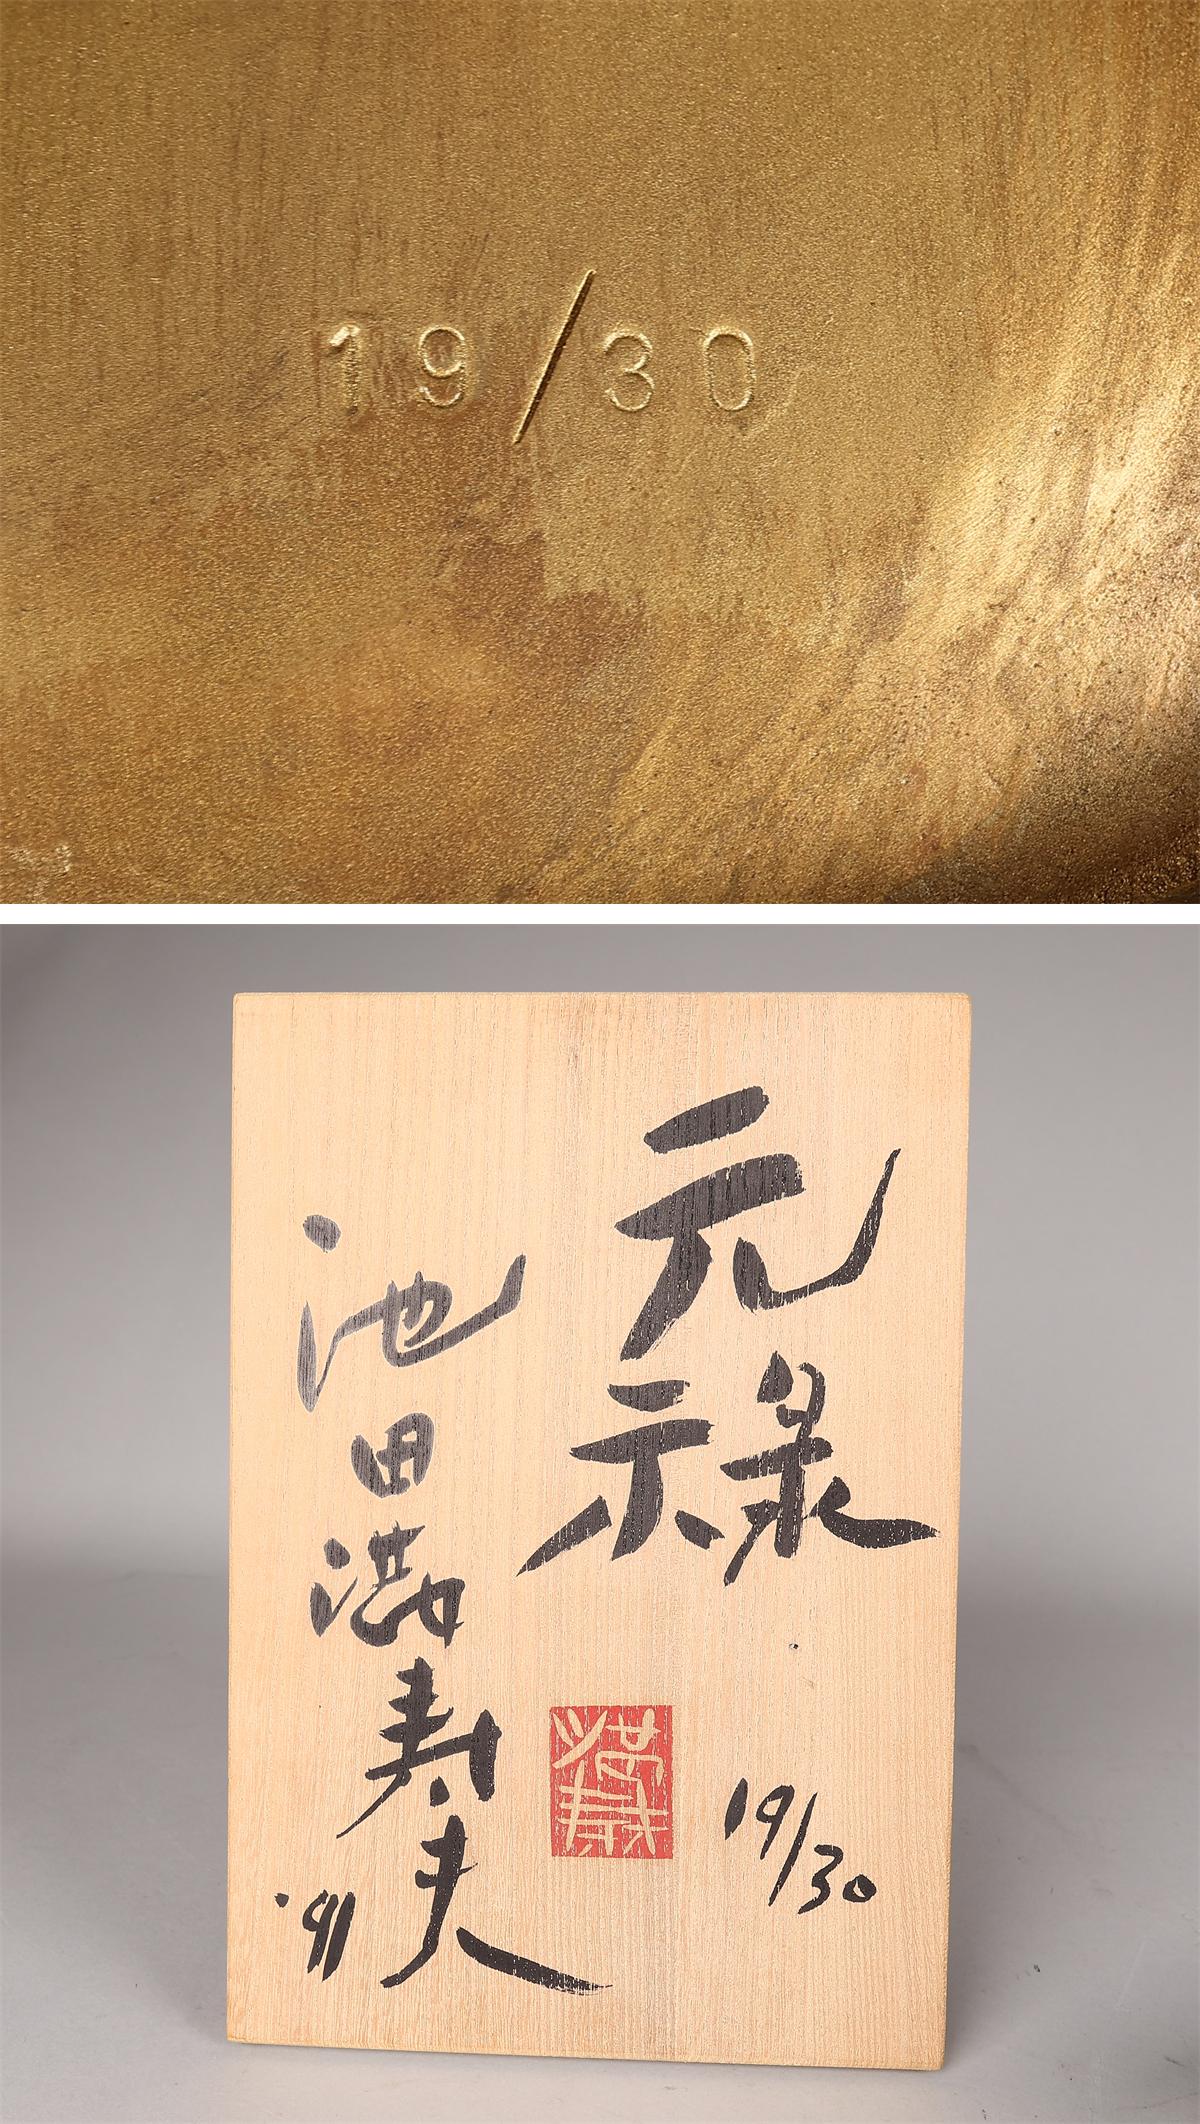 19/30
元禄
19/30
池田満寿夫
'91